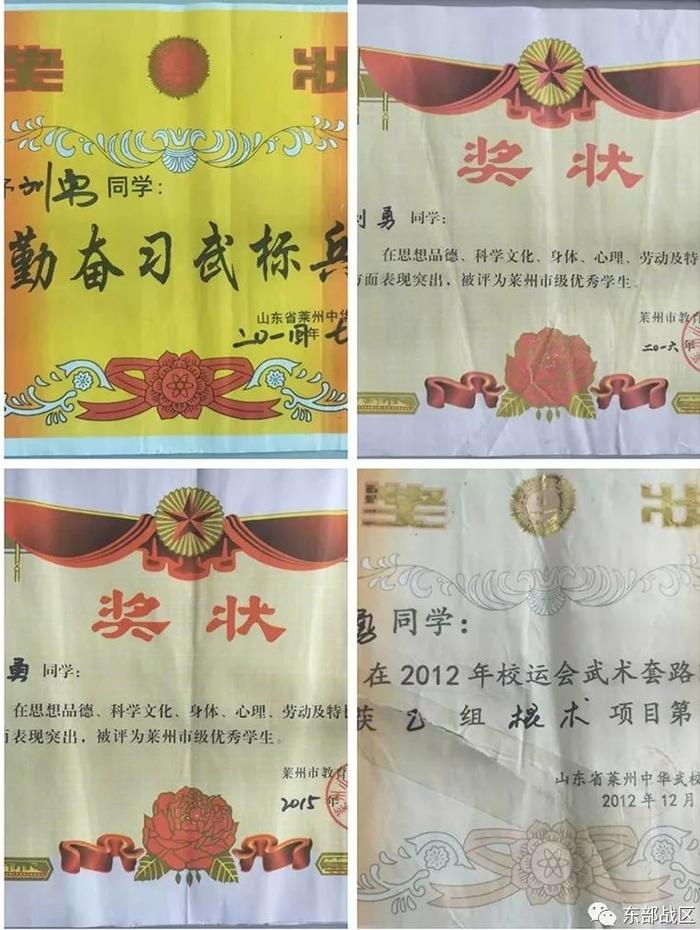 奖 状
刘勇 同学:
勤奋习武标兵
山东省莱州中华
二〇一四年 七
奖 状
刘 勇 同学:
在思想品德、科学文化、身体、心理、劳动及特
方面表现突出，被评为莱州市级优秀学生。
莱州市教育
二〇一六年
奖 状
勇 同学:
在思想品德、科学文化、身体、心理、劳动及特
面表现突出，被评为莱州市级优秀学生。
莱州市教育
2015 年
奖 状
勇 同学:
在2012年校运会武术套路
获 乙 组 棍术 项目第
山东省莱州中华武校
2012年12月
东部战区